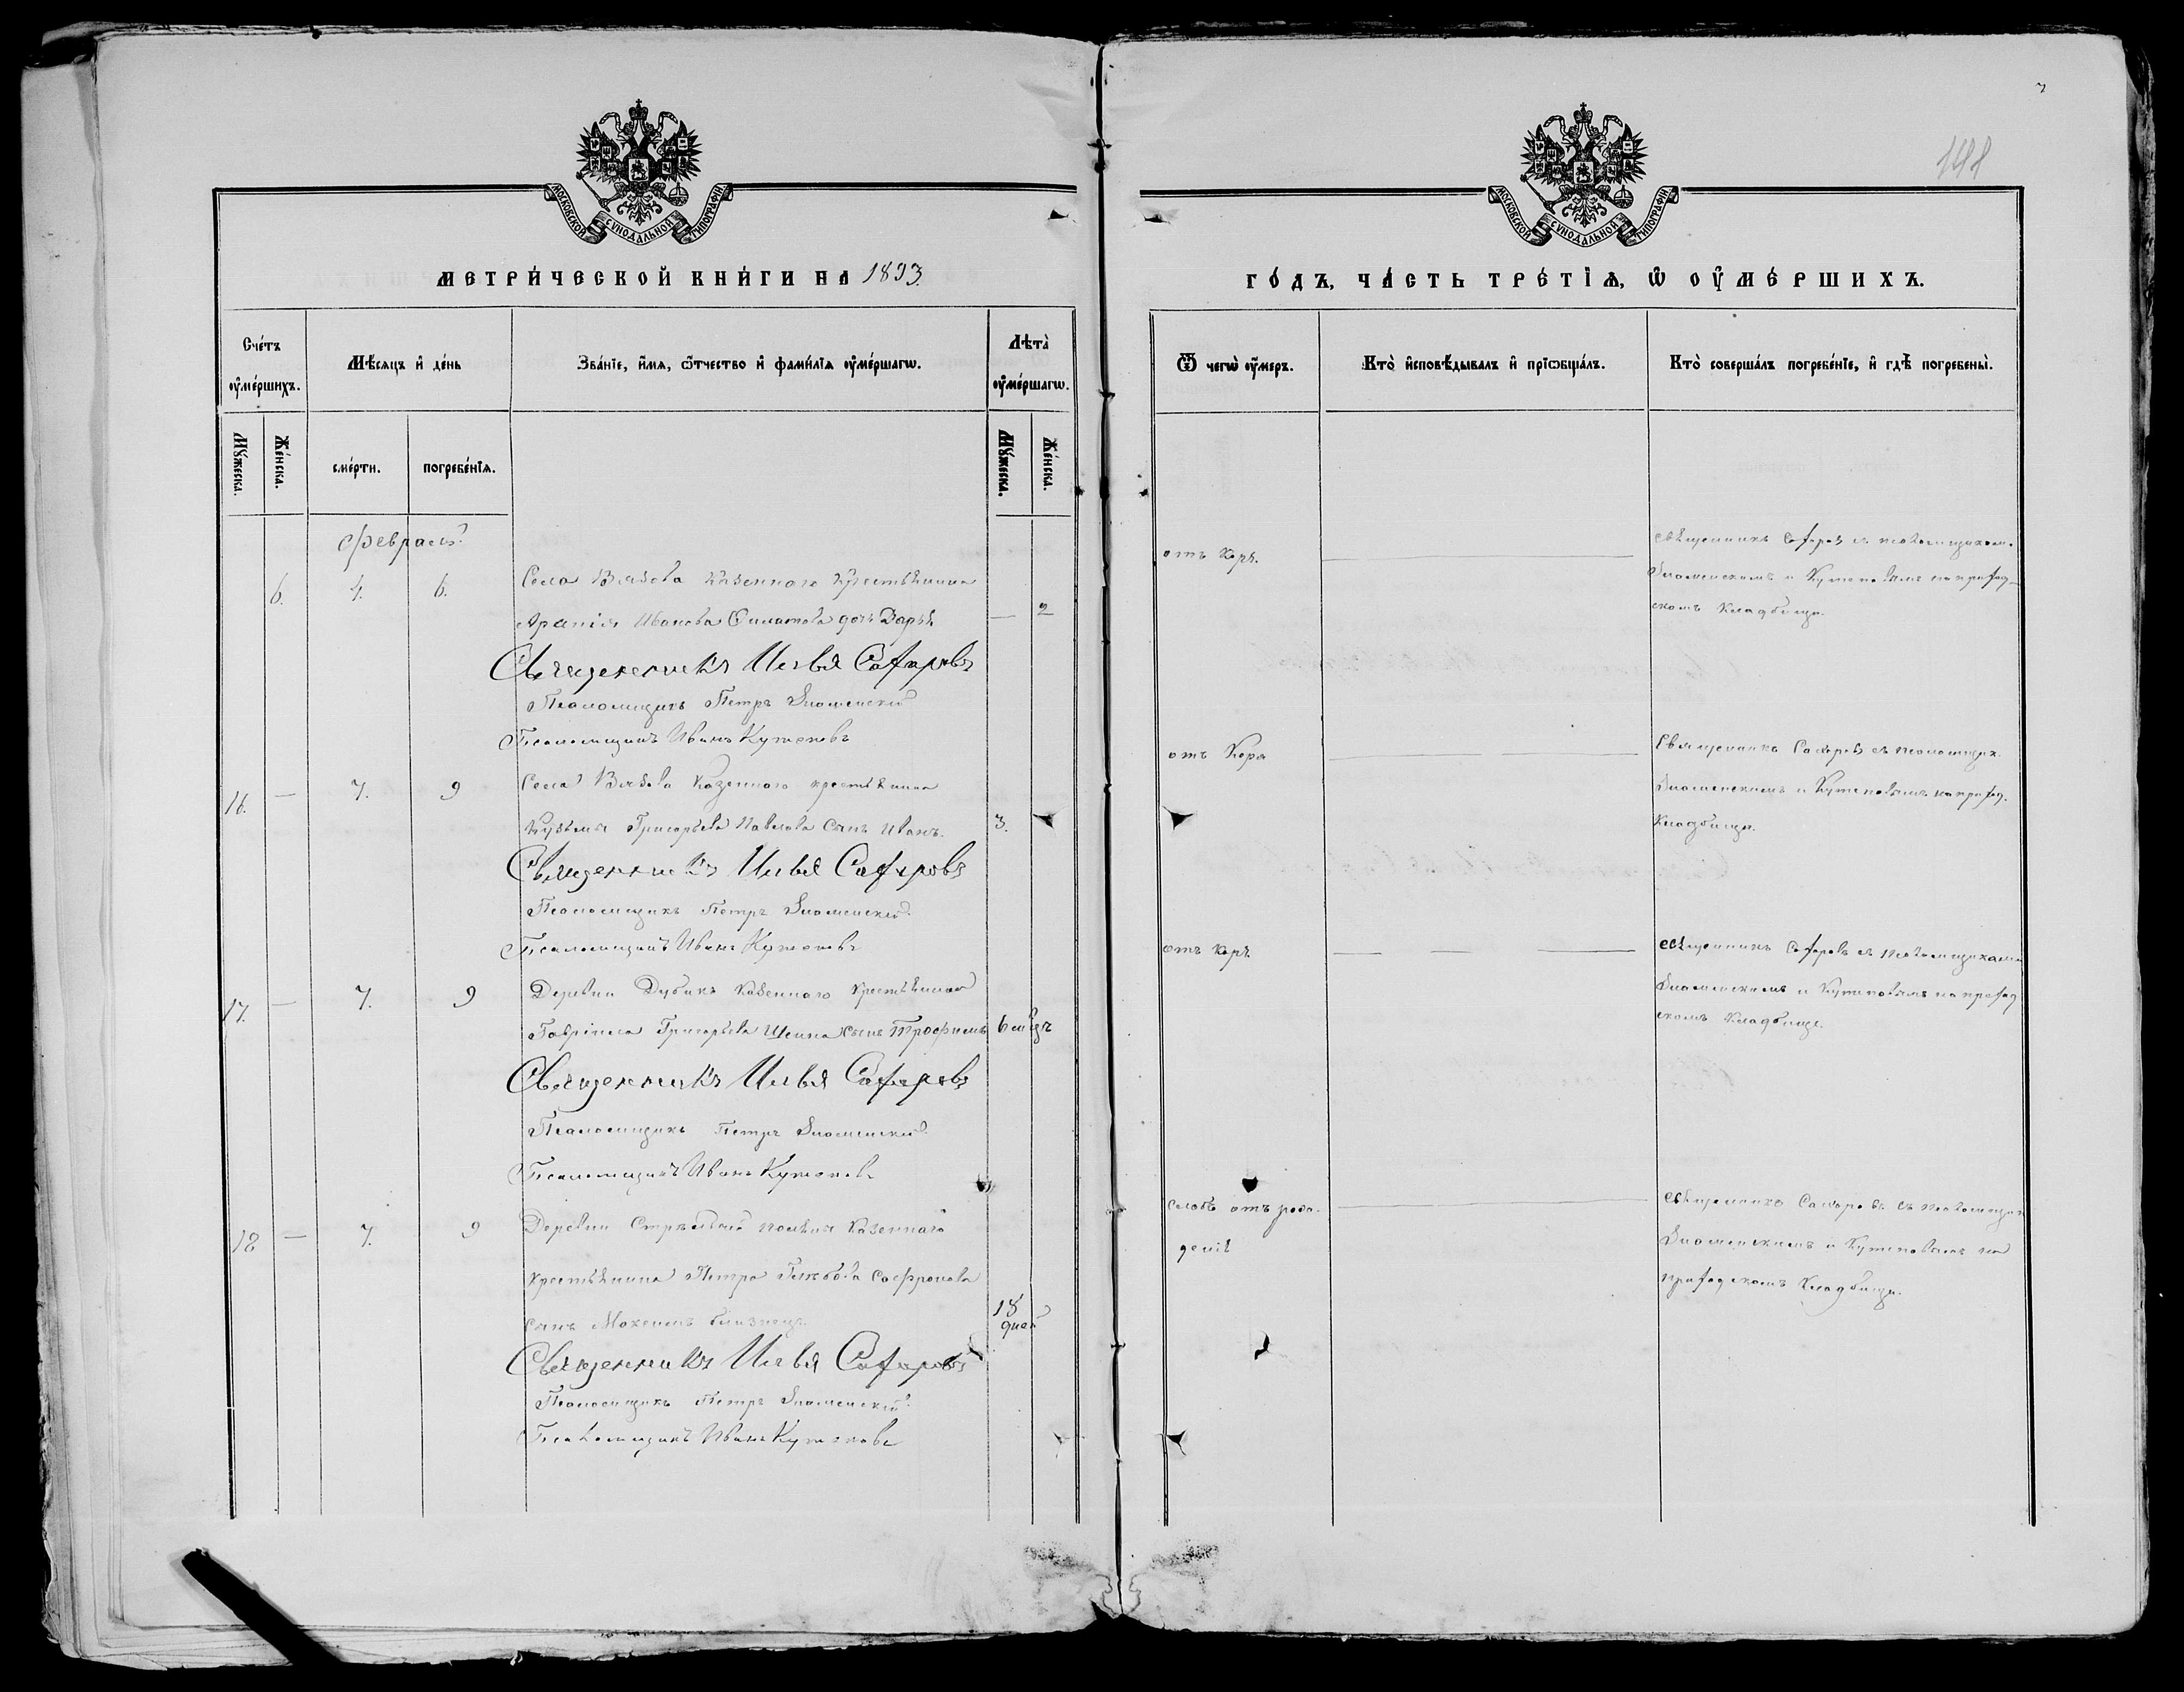 7
148
МОСКОВСКОЙ СѴНОДАЛЬНОЙ ТИПОГРАФІИ
МОСКОВСКОЙ СѴНОДАЛЬНОЙ ТИПОГРАФІИ
МЕТРИ́ЧЕСКОЙ КНИ́ГИ НА 1893.
ГО́ДЪ, ЧА́СТЬ ТРЕ́ТІѦ, Ѡ҆ ОУ҆МЕ́РШИХЪ.
Сче́тъ оу҆ме́ршихъ.
Мѣ́сяцъ и҆ де́нь
Зва́нїе, и҆́мѧ, ѻ҆́тчество и҆ фамилїѧ оу҆ме́ршагѡ.
Лѣта̀ оу҆ме́ршагѡ.
Ѿ чегѡ̀ оу҆́меръ.
Кто̀ и҆сповѣ́дывалъ и҆ прїѡбща́лъ.
Кто̀ соверша́лъ погребе́нїе, и҆ гдѣ̀ погребены̀.
Мꙋ́жеска.
Же́нска.
сме́рти.
погребе́нїѧ.
Мꙋ́жеска.
Же́нска.
Февраль
6. 4. 6. Села Вязова казеннаго крестьянина
Ивонова Филатова дочь Дарья — 2
Священникъ Илья Сафаровъ
Псаломщикъ Петръ Знаменскій
Псаломщикъ Иванъ Кутеповъ
отъ Коря
Священникъ Сафаровъ съ псаломщиками
Знаменскимъ и Кутеповымъ на приход-
скомъ кладбище.
16. — 7. 9 Села Вязова Казеннаго крестьянина
Кузьмы Григорьева Павлова сынъ Иванъ. 3.
Священникъ Илья Сафаровъ
Псаломщикъ Петръ Знаменскій
Псаломщикъ Иванъ Кутеповъ
отъ Коря
Священникъ Сафаровъ съ псаломщик.
Знаменскимъ и Кутеповымъ на приход.
кладбище.
17. — 7. 9 Деревни Дубикъ Казеннаго крестьянина
Гавріила Григорьева сынъ Трофимъ 6 мѣц
Священникъ Илья Сафаровъ
Псаломщикъ Петръ Знаменскій
Псаломщикъ Иванъ Кутеповъ
отъ коря
Священникъ Сафаровъ съ псаломщиками
Знаменскимъ и Кутеповымъ на приход
скомъ кладбище.
18 — 7. 9 Деревни казеннаго
крестьянина Петра Глебова Софронова
сынъ Максимъ близнецъ. 18 дней
Священникъ Илья Сафаровъ
Псаломщикъ Петръ Знаменскій
Псаломщикъ Иванъ Кутеповъ
слабъ отъ рож-
денія
Священникъ Сафаровъ съ псаломщик
Знаменскимъ и Кутеповымъ на
приходскомъ кладбище.